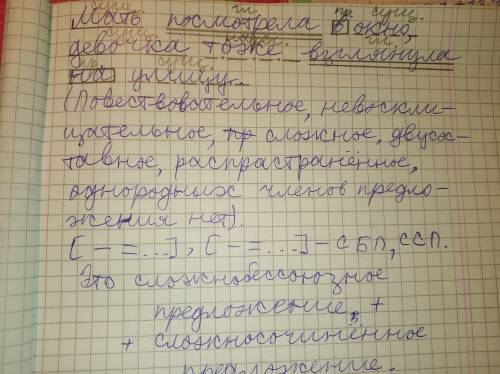 гл. пр. сущ.
Мать посмотрела в окно,
сущ. гл.
девочка тоже взглянула
пр. сущ.
на улицу.
(Повествовательное, невоскли-
цательное, пр сложное, двусос-
тавное, распрастранённое,
однородных членов предло-
жения нет).
[ — =...], [ — =...] - СБП, ССП.
Это сложнобессоюзное
предложение, +
+ сложносочинённое
предложение.